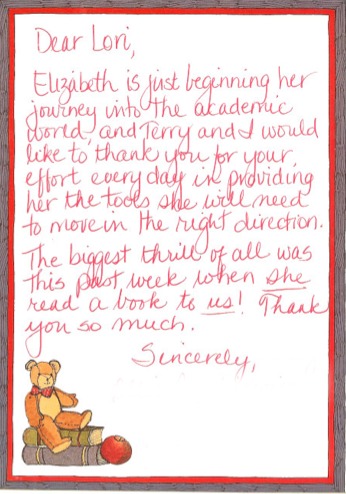 Dear Lori,
Elizabeth is just beginning her
journey into the academic
world, and Terry and I would
like to thank you for your
effort every day in providing
her the tools she will need
to move in the right direction.
The biggest thrill of all was
this past week when she
read a book to us! Thank
you so much.
Sincerely,